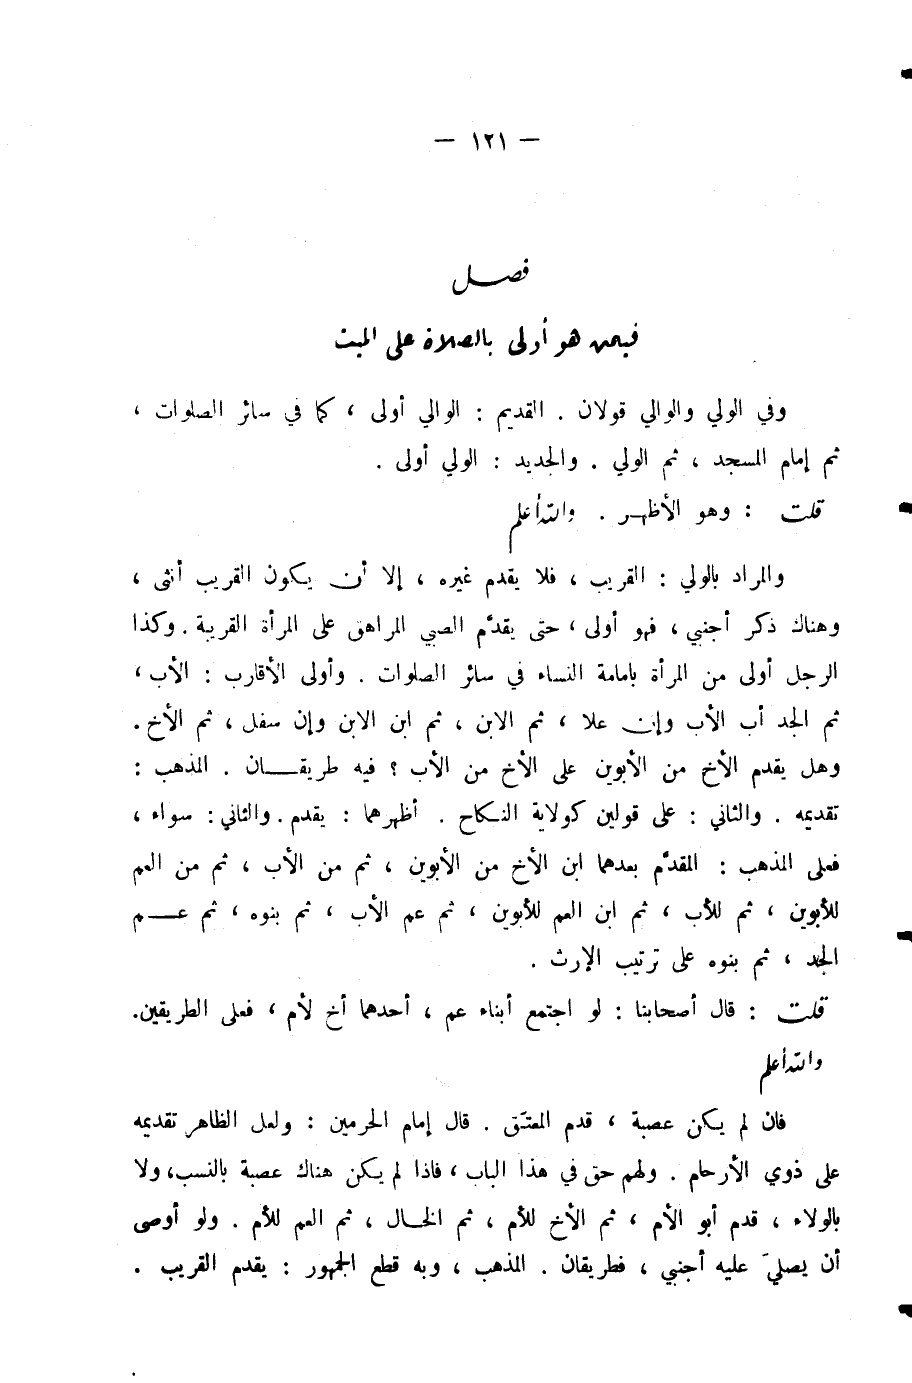 — ١٢١ —
فصــل
فيمن هو أولى بالصلاة على الميت
وفي الولي والوالي قولان . القديم : الوالي أولى ، كما في سائر الصلوات ،
ثم إمام المسجد ، ثم الولي . والجديد : الولي أولى .
قلت : وهو الأظهـر . والله أعلم
والمراد بالولي : القريب ، فلا يقدم غيره ، إلا أن يكون القريب أنثى ،
وهناك ذكر أجنبي ، فهو أولى ، حتى يقدَّم الصبي المراهق على المرأة القريبة . وكذا
الرجل أولى من المرأة بامامة النساء في سائر الصلوات . وأولى الأقارب : الأب ،
ثم الجد أب الأب وإن علا ، ثم الابن ، ثم ابن الابن وإن سفل ، ثم الأخ .
وهل يقدم الأخ من الأبوين على الأخ من الأب ؟ فيه طريقــان . المذهب :
تقديمه . والثاني : على قولين كولاية النـكاح . أظهرهما : يقدم . والثاني : سواء ،
فعلى المذهب : المقدَّم بعدهما ابن الأخ من الأبوين ، ثم من الأب ، ثم من العم
للأبوين ، ثم للأب ، ثم ابن العم للأبوين ، ثم عم الأب ، ثم بنوه ، ثم عــم
الجد ، ثم بنوه على ترتيب الإرث .
قلت : قال أصحابنا : لو اجتمع أبناء عم ، أحدهما أخ لأم ، فعلى الطريقين.
والله أعلم
فان لم يكن عصبة ، قدم المعتَق . قال إمام الحرمين : ولعل الظاهر تقديمه
على ذوي الأرحام . ولهم حق في هذا الباب ، فاذا لم يكن هناك عصبة بالنسب، ولا
بالولاء ، قدم أبو الأم ، ثم الأخ للأم ، ثم الخـال ، ثم العم للأم . ولو أوصى
أن يصليَ عليه أجنبي ، فطريقان . المذهب ، وبه قطع الجمهور : يقدم القريب .